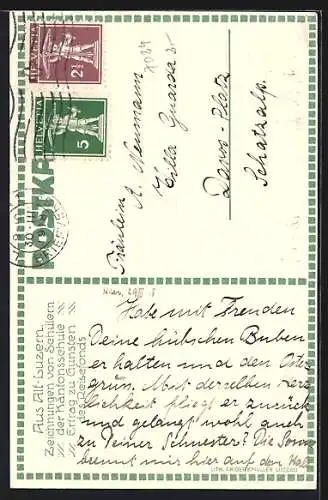 HELVETIA
2½
HELVETIA
5
POSTKA
Fräulein A. Neumann
Villa Guarda
Davos-Platz
Schatzalp.
Aus Alt-Luzern.
Zeichnungen von Schülern
der Kantonsschule
Ertrag zu Gunsten
des Reisefonds
Habe mit Freuden
Deine hübschen Buben
erhalten und den Oster
gruss. Mit derselben Herz
lichkeit fliegt er zurück
und gelangt wohl auch
zu Deiner Schwester? Die Sonne
brennt mir hier auf den Hals
LITH. FRIDERICH